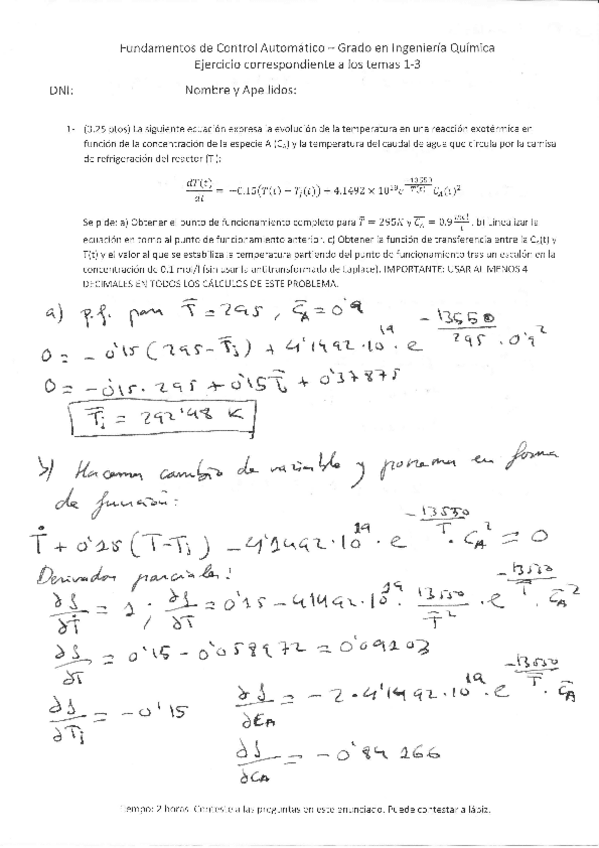 Fundamentos de Control Automático – Grado en Ingeniería Química
Ejercicio correspondiente a los temas 1-3
DNI: Nombre y Apellidos:
1- (3.25 ptos) La siguiente ecuación expresa la evolución de la temperatura en una reacción exotérmica en
función de la concentración de la especie A (C_A) y la temperatura del caudal de agua que circula por la camisa
de refrigeración del reactor (T_j):
dT(t)/dt = −0.15(T(t) − T_j(t)) − 4.1492 × 10^19 e^(−13550/T(t)) C_A(t)^2
Se pide: a) Obtener el punto de funcionamiento completo para T̄ = 295K y C̄_A = 0.9 mol/l, b) Linealizar la
ecuación en torno al punto de funcionamiento anterior. c) Obtener la función de transferencia entre la C_A(t) y
T(t) y el valor al que se estabiliza la temperatura partiendo del punto de funcionamiento tras un escalón en la
concentración de 0.1 mol/l (sin usar la antitransformada de Laplace). IMPORTANTE: USAR AL MENOS 4
DECIMALES EN TODOS LOS CÁLCULOS DE ESTE PROBLEMA.
a) p.f. para T̄ = 295, C̄_A = 0'9
0 = −0'15 (295 − T̄_j) + 4'1492·10^19 · e^(−13550/295) · 0'9^2
0 = −0'15·295 + 0'15T̄_j + 0'37875
T̄_j = 292'48 K
b) Hacemos cambio de variable y ponemos en forma
de función:
Ṫ + 0'15 (T − T_j) − 4'1492·10^19 · e^(−13550/T) · C_A^2 = 0
Derivadas parciales:
∂f/∂Ṫ = 1 ; ∂f/∂T = 0'15 − 4'1492·10^19 · 13550/T̄^2 · e^(−13550/T̄) · C̄_A^2
∂f/∂T = 0'15 − 0'058972 = 0'09103
∂f/∂T_j = −0'15 ∂f/∂C_A = −2·4'1492·10^19 · e^(−13550/T̄) · C̄_A
∂f/∂C_A = −0'84166
Tiempo: 2 horas. Conteste a las preguntas en este enunciado. Puede contestar a lápiz.